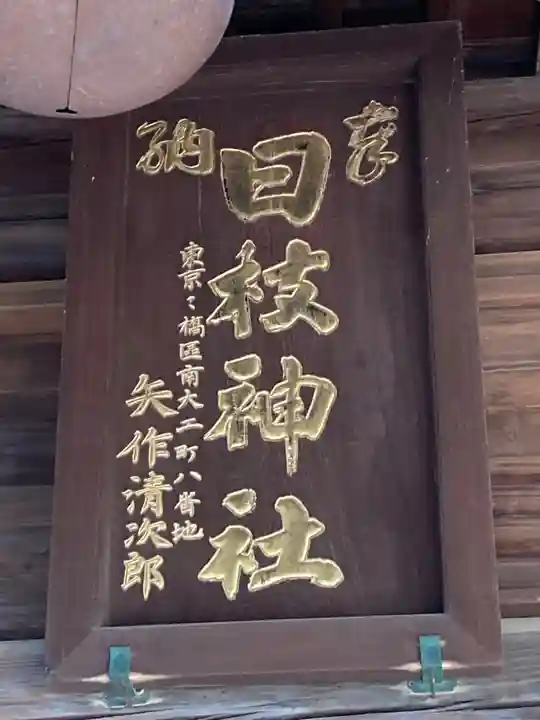 奉
日枝神社
納
東京々橋區南大工町八番地
矢作清次郎